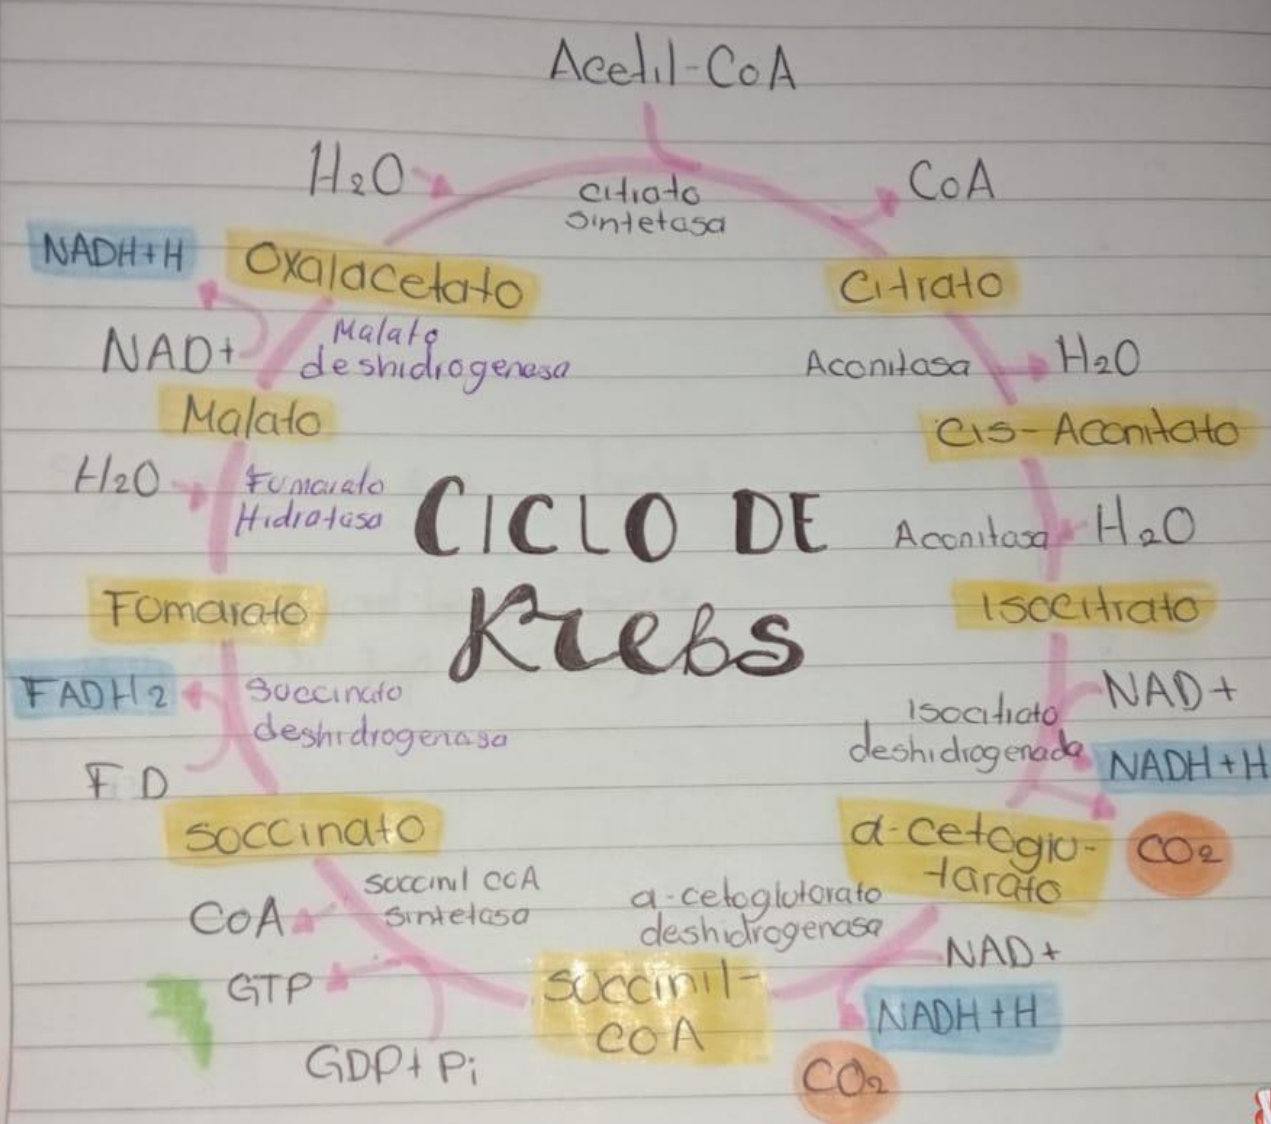 Acetil-CoA
H₂O
CoA
Citrato
Sintetasa
NADH+H
Oxalacetato
Citrato
NAD+
Malato
deshidrogenasa
Aconitasa
H₂O
Malato
Cis-Aconitato
H₂O
Fumarato
Hidratasa
CICLO DE
Krebs
Aconitasa
H₂O
Fomarato
Isocitrato
FADH₂
Succinato
deshidrogenasa
NAD+
Isocitrato
deshidrogenada
NADH+H
FD
Soccinato
α-cetoglu-
tarato
CO₂
CoA
succinil CoA
sintetasa
α-cetoglutorato
deshidrogenasa
NAD+
GTP
Succinil-
COA
NADH+H
GDP+Pi
CO₂